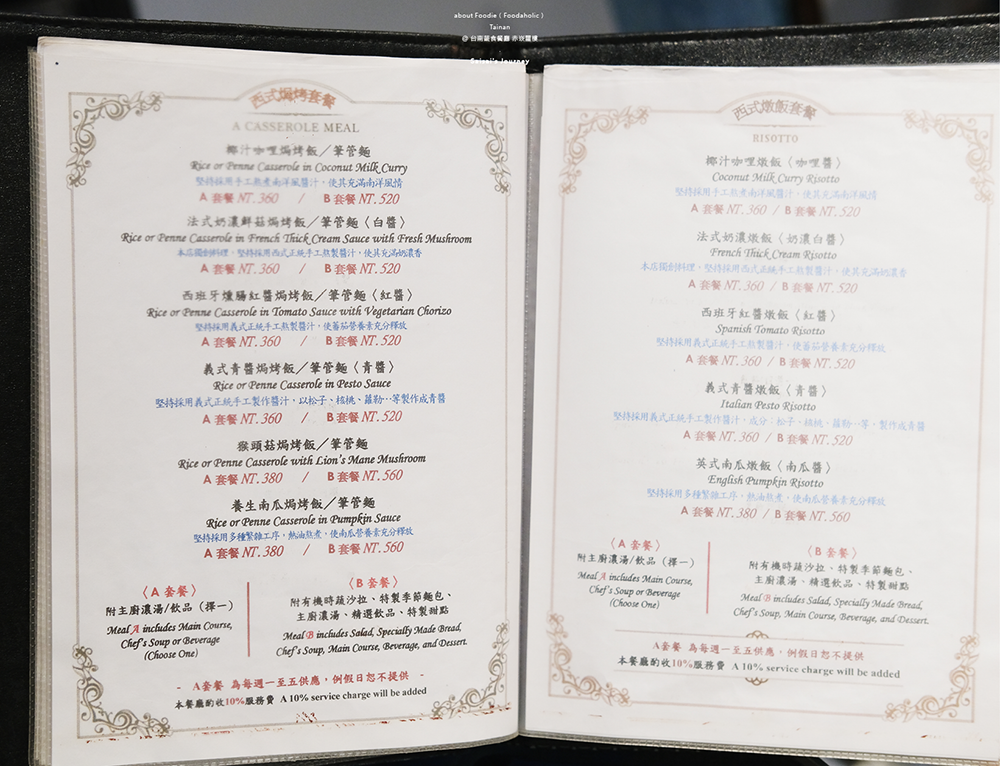 about Foodie ( Foodaholic )
Tainan
@ 台南蔬食餐廳 赤崁璽樓
Saint's Journey
西式焗烤套餐
A CASSEROLE MEAL
椰汁咖哩焗烤飯／筆管麵
Rice or Penne Casserole in Coconut Milk Curry
堅持採用手工熬煮南洋風醬汁，使其充滿南洋風情
A 套餐 NT. 360 / B 套餐 NT. 520
法式奶濃鮮菇焗烤飯／筆管麵〈白醬〉
Rice or Penne Casserole in French Thick Cream Sauce with Fresh Mushroom
本店獨創料理，堅持採用西式正統手工熬製醬汁，使其充滿奶濃香
A 套餐 NT. 360 / B 套餐 NT. 520
西班牙燻腸紅醬焗烤飯／筆管麵〈紅醬〉
Rice or Penne Casserole in Tomato Sauce with Vegetarian Chorizo
堅持採用義式正統手工熬製醬汁，使蕃茄營養素充分釋放
A 套餐 NT. 360 / B 套餐 NT. 520
義式青醬焗烤飯／筆管麵〈青醬〉
Rice or Penne Casserole in Pesto Sauce
堅持採用義式正統手工製作醬汁，以松子、核桃、蘿勒‥等製作成青醬
A 套餐 NT. 360 / B 套餐 NT. 520
猴頭菇焗烤飯／筆管麵
Rice or Penne Casserole with Lion's Mane Mushroom
A 套餐 NT. 380 / B 套餐 NT. 560
養生南瓜焗烤飯／筆管麵
Rice or Penne Casserole in Pumpkin Sauce
堅持採用多種繁雜工序，熱油熬煮，使南瓜營養素充分釋放
A 套餐 NT. 380 / B 套餐 NT. 560
〈A 套餐〉
附主廚濃湯/飲品（擇一）
Meal A includes Main Course,
Chef's Soup or Beverage
(Choose One)
〈B 套餐〉
附有機時蔬沙拉、特製季節麵包、
主廚濃湯、精選飲品、特製甜點
Meal B includes Salad, Specially Made Bread,
Chef's Soup, Main Course, Beverage, and Dessert.
- A套餐 為每週一至五供應，例假日恕不提供 -
本餐廳酌收10%服務費 A 10% service charge will be added
西式燉飯套餐
RISOTTO
椰汁咖哩燉飯〈咖哩醬〉
Coconut Milk Curry Risotto
堅持採用手工熬煮南洋風醬汁，使其充滿南洋風情
A 套餐 NT. 360 / B 套餐 NT. 520
法式奶濃燉飯〈奶濃白醬〉
French Thick Cream Risotto
本店獨創料理，堅持採用西式正統手工熬製醬汁，使其充滿奶濃香
A 套餐 NT. 360 / B 套餐 NT. 520
西班牙紅醬燉飯〈紅醬〉
Spanish Tomato Risotto
堅持採用義式正統手工熬製醬汁，使蕃茄營養素充分釋放
A 套餐 NT. 360 / B 套餐 NT. 520
義式青醬燉飯〈青醬〉
Italian Pesto Risotto
堅持採用義式正統手工製作醬汁，成分：松子、核桃、蘿勒‥等，製作成青醬
A 套餐 NT. 360 / B 套餐 NT. 520
英式南瓜燉飯〈南瓜醬〉
English Pumpkin Risotto
堅持採用多種繁雜工序，熱油熬煮，使南瓜營養素充分釋放
A 套餐 NT. 380 / B 套餐 NT. 560
〈A 套餐〉
附主廚濃湯/飲品（擇一）
Meal A includes Main Course,
Chef's Soup or Beverage
(Choose One)
〈B 套餐〉
附有機時蔬沙拉、特製季節麵包、
主廚濃湯、精選飲品、特製甜點
Meal B includes Salad, Specially Made Bread,
Chef's Soup, Main Course, Beverage, and Dessert.
A套餐 為每週一至五供應，例假日恕不提供
本餐廳酌收10%服務費 A 10% service charge will be added